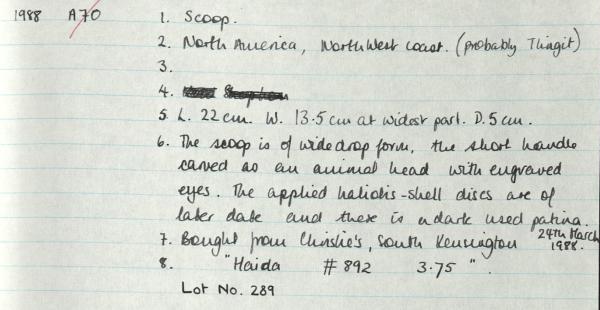 1988 A70 1. Scoop.
2. North America, North West Coast. (probably Tlingit)
3.
4.
5. L. 22 cm. W. 13.5 cm at widest part. D. 5 cm.
6. The scoop is of wide drop form, the short handle
carved as an animal head with engraved
eyes. The applied haliotis-shell discs are of
later date and there is a dark used patina.
7. Bought from Christie's, South Kensington 24th March
1988.
8. "Haida # 892 3.75 ".
Lot No. 289